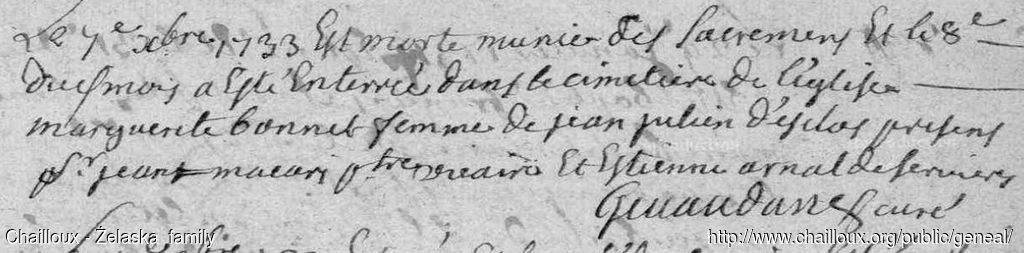 Le 7e xbre 1733 Est morte munie des Sacremens Et le 8e
dud mois a Esté Enterrée dans le cimetiere de l'église
marguerite bonnet femme de jean julien d'esclos presens
sr jean macary ptre vicaire Et Estienne arnal de servieres
curé
Chailloux - Želaska family
http://www.chailloux.org/public/geneal/